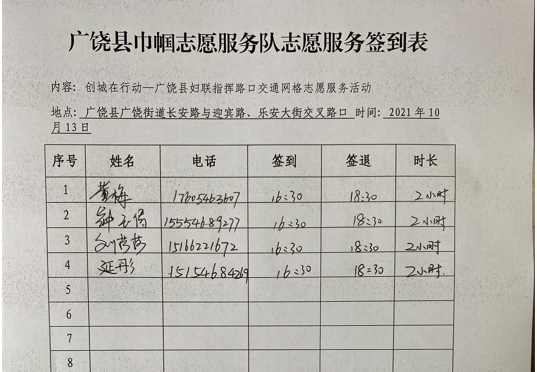 广饶县巾帼志愿服务队志愿服务签到表
内容：创城在行动—广饶县妇联指挥路口交通网格志愿服务活动
地点：广饶县广饶街道长安路与迎宾路、乐安大街交叉路口 时间：2021年10
月13日
序号 姓名 电话 签到 签退 时长
1 黄梅 17605463607 16:30 18:30 2小时
2 钟玉 15554689277 16:30 18:30 2小时
3 刘 15166221672 16:30 18:30 2小时
4 延彤 15154684269 16:30 18:30 2小时
5
6
7
8